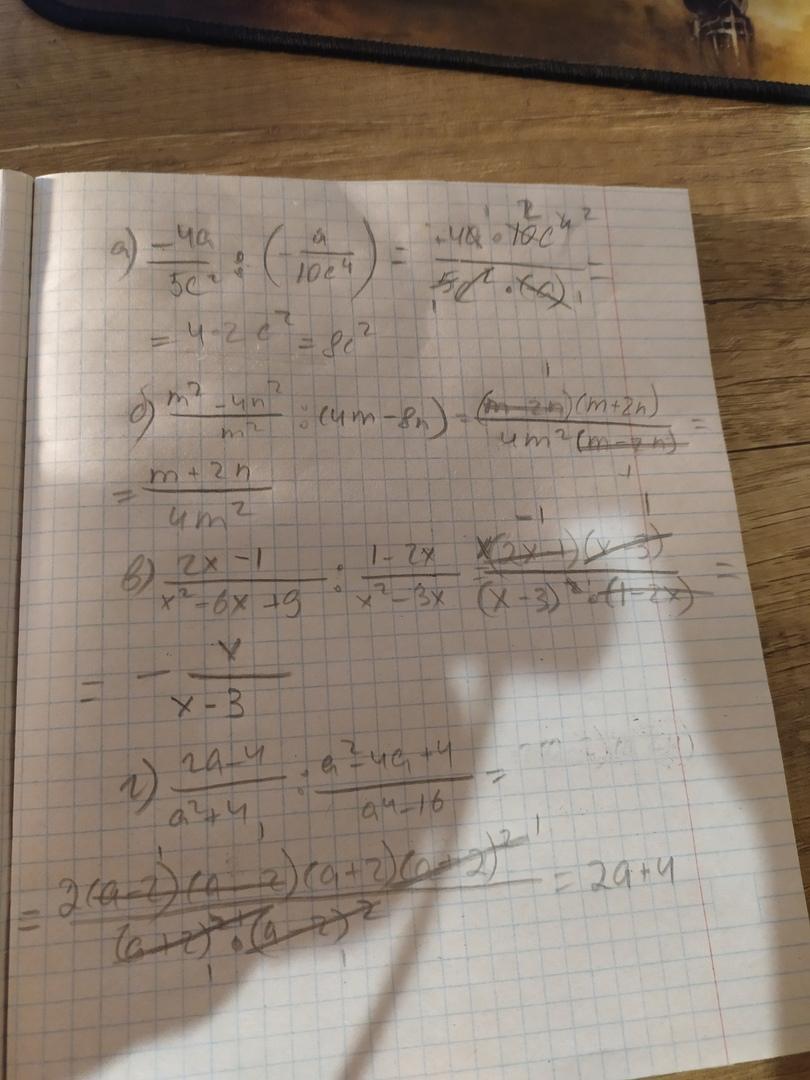 а) -4a/5c² : (-a/10c⁴) = -4a·10c⁴/5c²·(-a) =
= 4·2c² = 8c²
б) m²-4n²/m² : (4m-8n) = (m-2n)(m+2n)/4m²(m-2n) =
= m+2n/4m²
в) 2x-1/x²-6x+9 : 1-2x/x²-3x = x(2x-1)(x-3)/(x-3)²·(1-2x) =
= - x/x-3
г) 2a-4/a²+4 : a²-4a+4/a4-16 =
= 2(a-2)(a-2)(a+2)(a+2)²/(a+2)²·(a-2)² = 2a+4